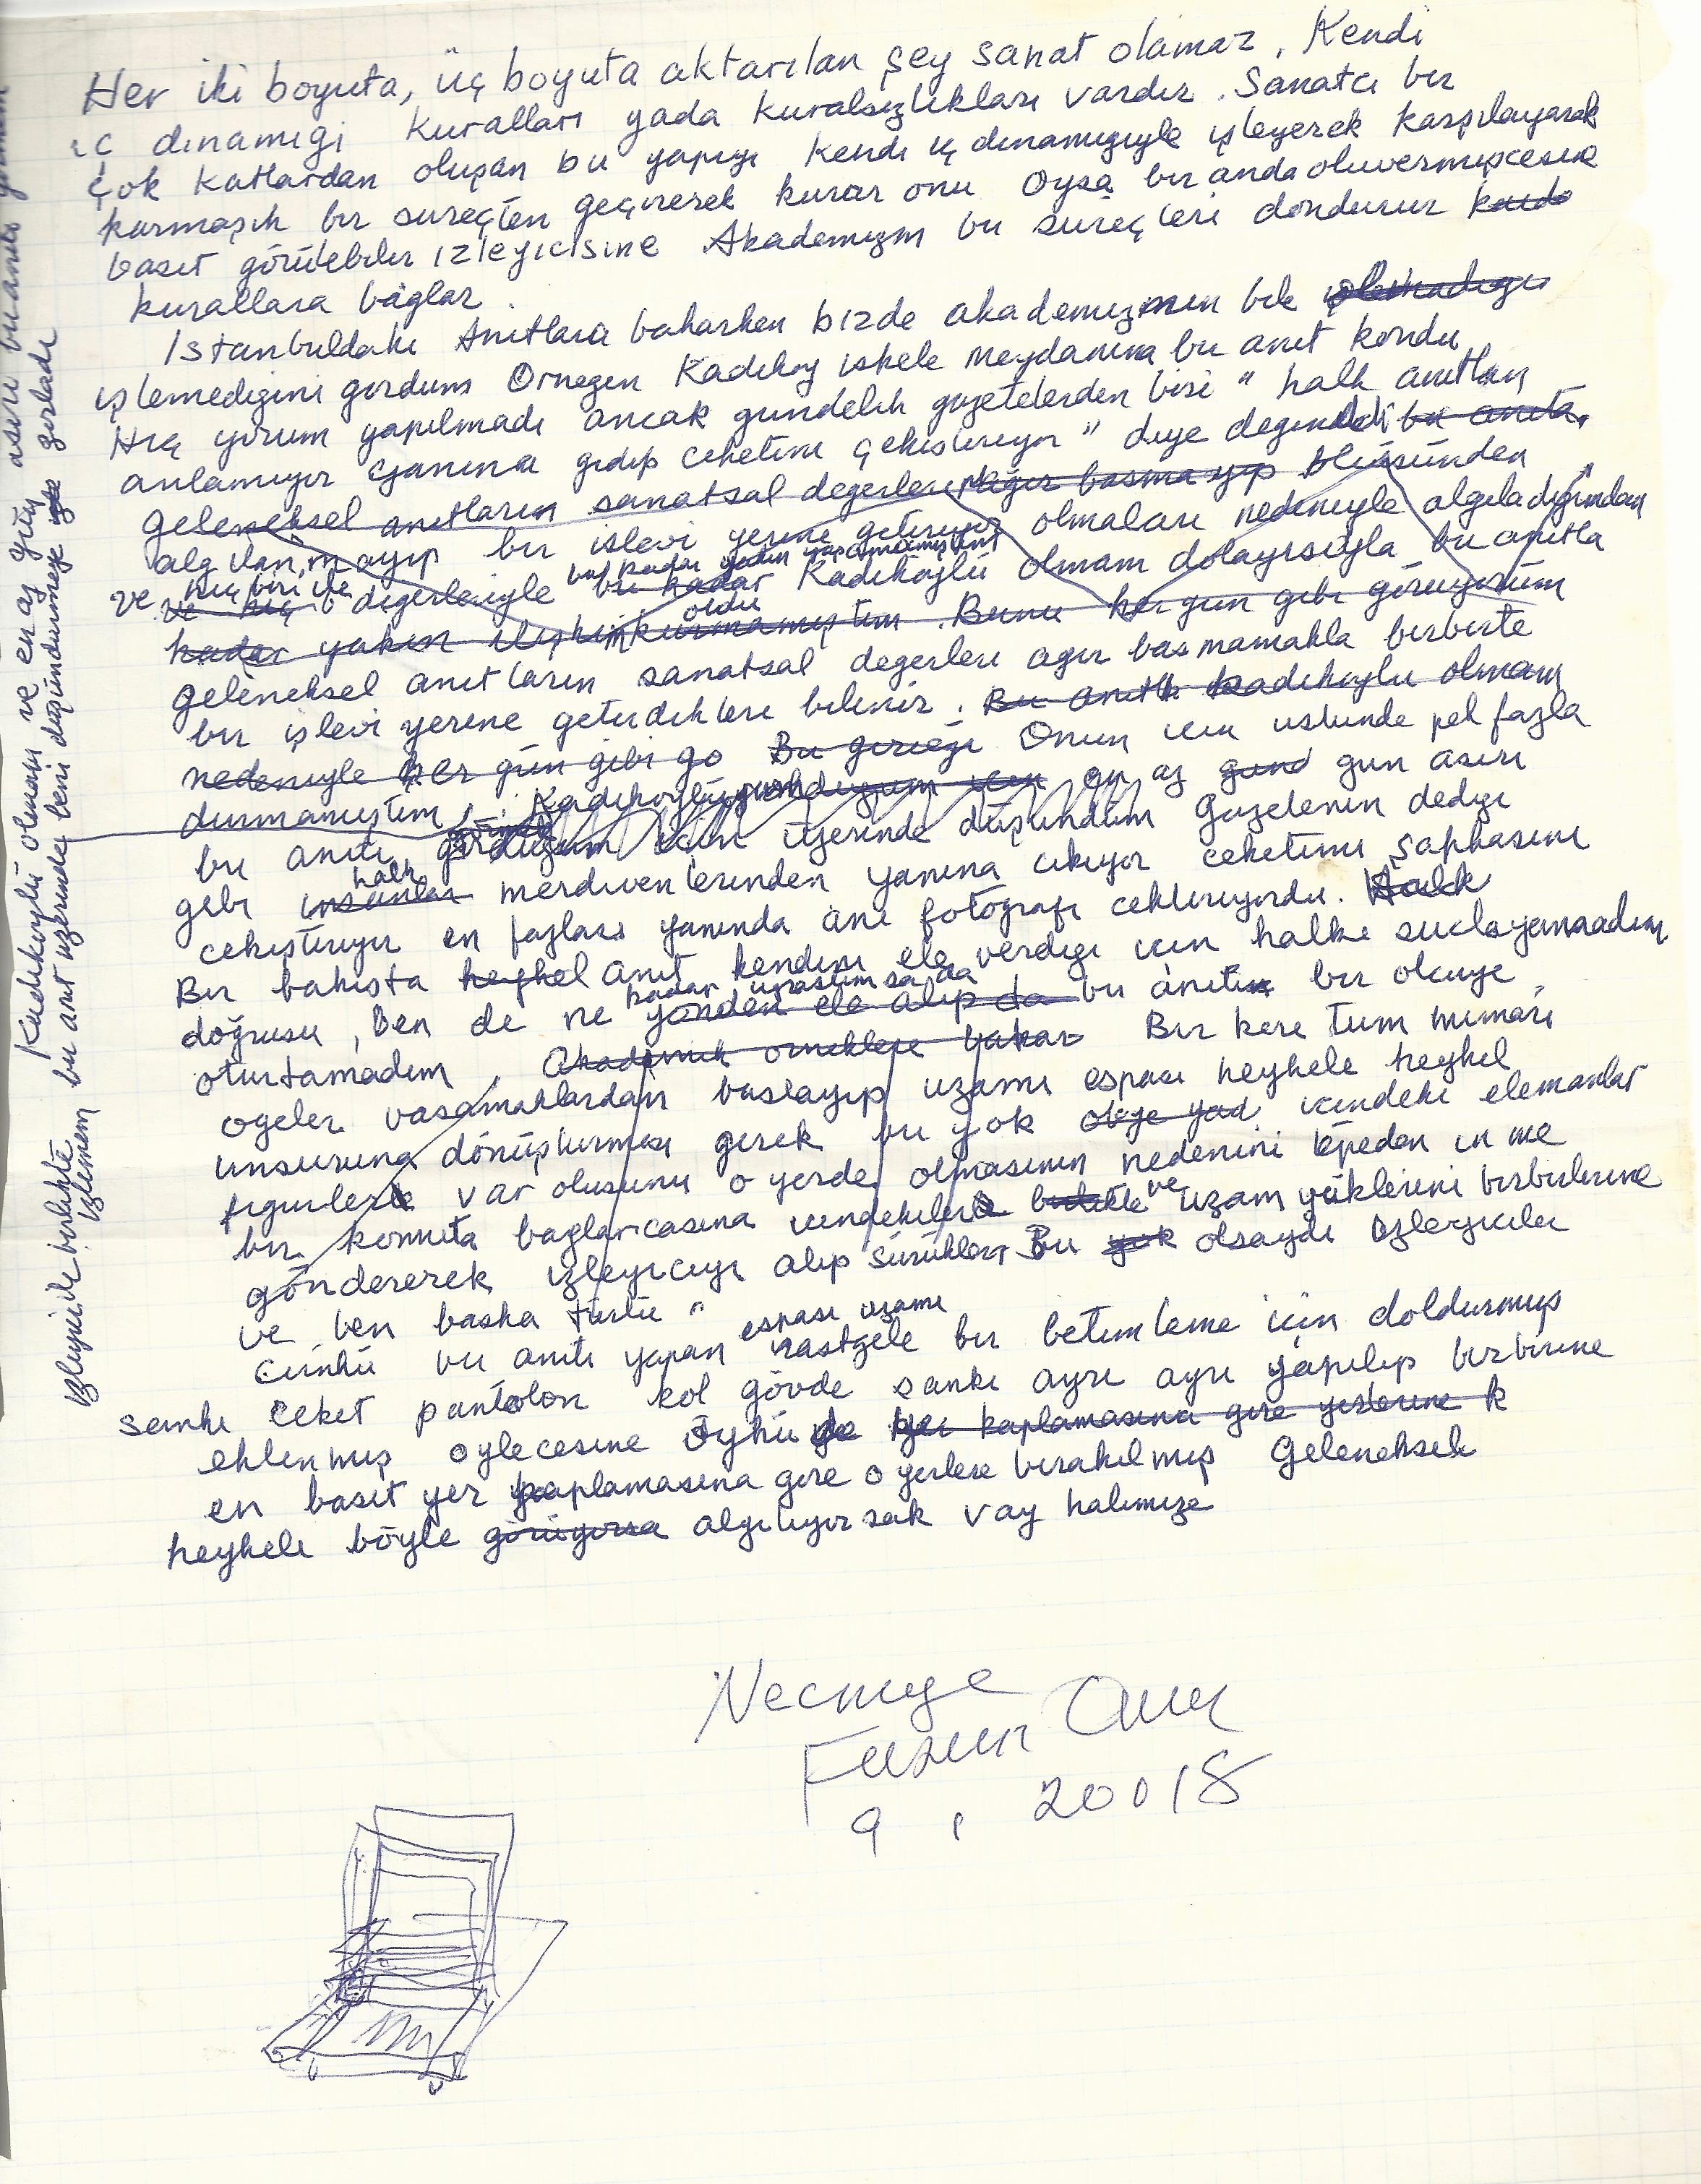 Her iki boyuta, üç boyuta aktarılan şey sanat olamaz. Kendi
iç dinamiği kuralları yada kuralsızlıkları vardır. Sanatcı bir
çok katlardan oluşan bu yapıyı kendi iç dinamiğiyle işleyerek karşılayarak
karmaşık bir sureçten geçirerek kurar onu Oysa bir anda oluvermişcesine
basit görülebilir izleyicisine Akademizm bu süreçleri dondurur
kurallara bağlar.
İstanbuldaki Anıtlara bakarken bizde akademizmin bile işlemadığı
işlemediğini gördüm Örneğin Kadıköy iskele meydanına bu anıt kondu
Hiç yorum yapılmadı ancak gundelik gazetelerden birisi " halk anıttan
anlamıyor yanına gidip ceketini çekiştiriyor " diye değindi bu anıta.
geleneksel anıtların sanatsal değerleri ağır basmayıp ölçüsünden
algılanmayıp bir işlevi yerine getiriyor olmaları nedeniyle algıladığından
ve hiç biri ile bu kadar yakın
ve hiç değerleriyle bu kadar Kadıköylü olmam dolayısıyla bu anıtla
oldu
kadar yakın ilişkim kurmamıştım. Bunu her gün gibi görüyorum
geleneksel anıtların sanatsal değerleri ağır basmamakla birlikte
bir işlevi yerine getirdikleri bilinir. Bu anıtla Kadıköylü olmam
nedeniyle her gün gibi gö Bu gerçeği Onun icin ustunde pek fazla
durmamıştım. Kadıköylü icin en az gun aşırı
bu anıtı gördüğüm icin üzerinde düşündüm Gazetenin dediği
halk
gibi insanlar merdivenlerinden yanına cıkıyor ceketini şapkasını
cekiştiriyor en fazlası yanında anı fotoğrafı cektiriyordu. Halk
Bir bakışta heykel anıt kendini ele verdiği icin halkı suclayamadım
kadar uğraştımsa da
doğrusu, Ben de ne yönden ele alıp da bu anıtı bir okuye
oturtamadım. Akademik orneklere bakar Bir kere tum mimari
ogeler basamaklardan baslayıp uzamı espası heykele heykel
unsuruna dönüşturmesi gerek bu yok obje yad icindeki elemanlar
figurlerle var olusunu o yerde olmasının nedenini tepeden inme
bir komuta bağlarcasına icindekilerle ve uzam yüklerini birbirlerine
göndererek izleyiciyi alıp sürükler Bu yok olsaydı izleyiciler
ve ben başka türlü "
espası uzamı
Cünkü bu anıtı yapan rastgele bir betimleme icin doldurmuş
sanki ceket pantolon kol gövde sanki ayrı ayrı yapılıp birbirine
eklenmiş oylecesine öykü de yer kaplamasına göre yerlerine k
en basit yer kaplamasına göre o yerlere bırakılmış Geleneksel
heykeli böyle görüyorsa algılıyorsak vay halimize
Kadıköylü olmam ve en az gün aşırı bu anıtı
izleyici ile birlikte bu anıt uzerinde beni düşündürmeye zorladı
izlemem
Necmiye
Füsun Onur
9 . 20018